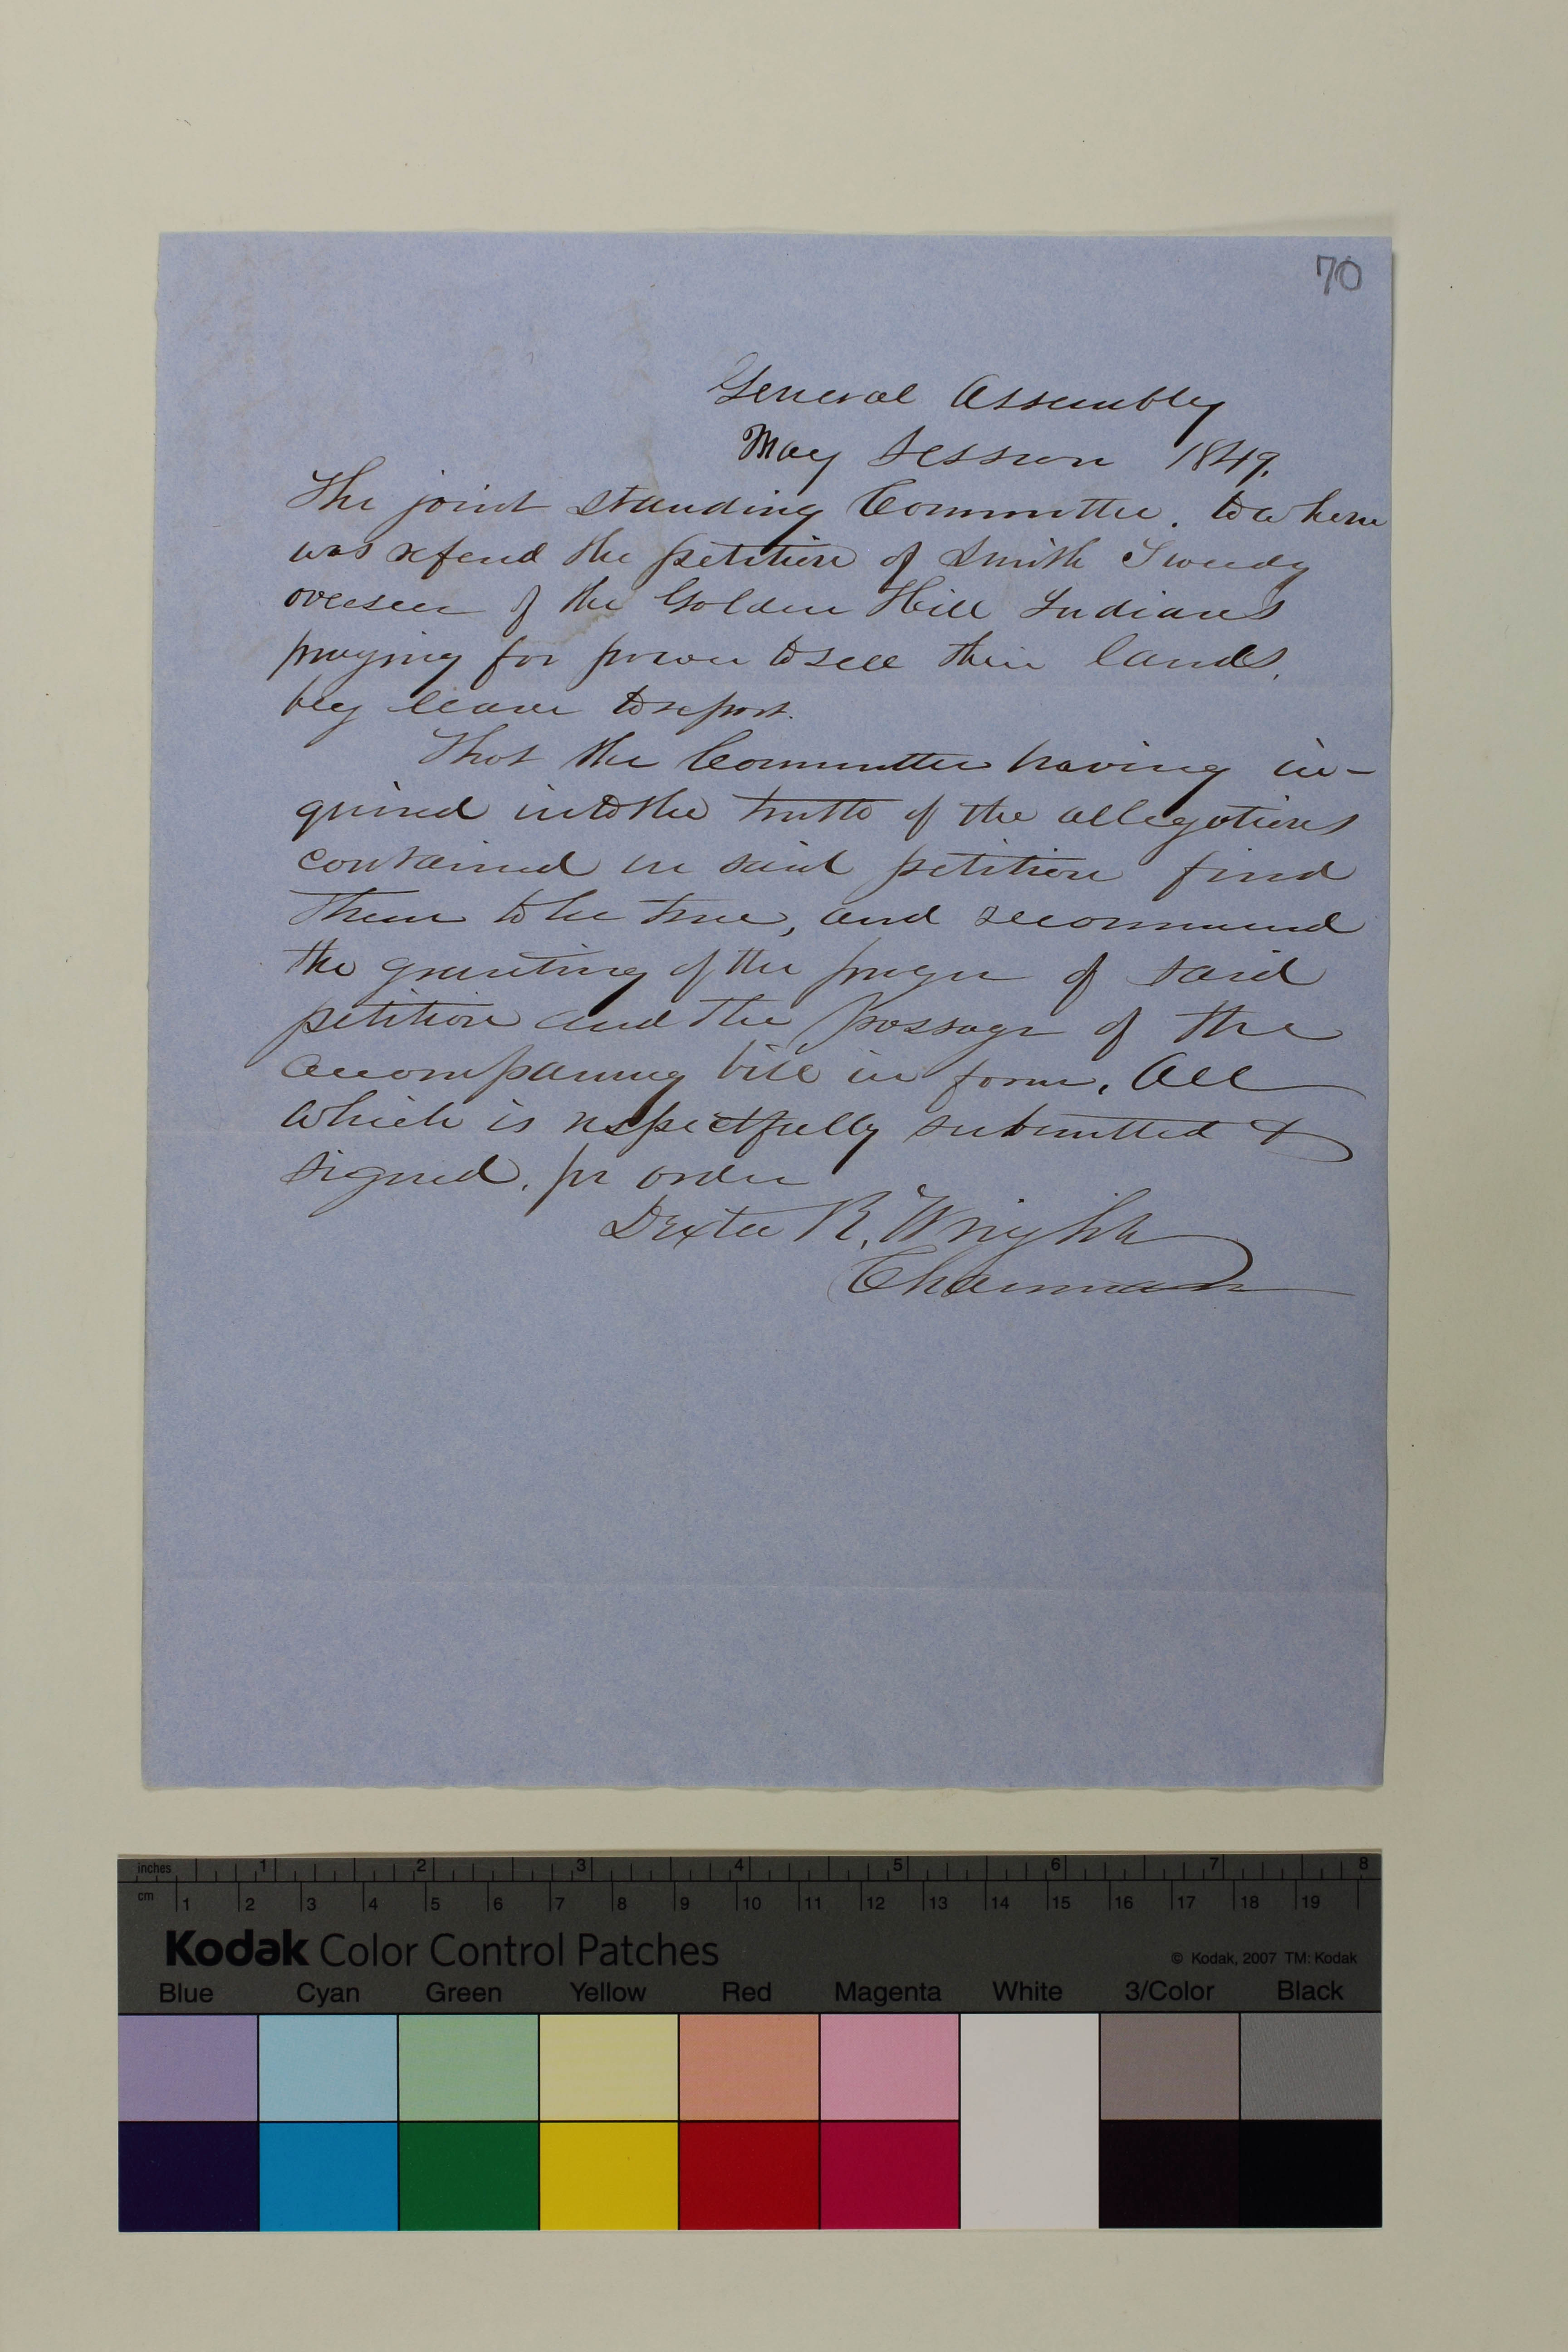 70
General Assembly
May Session 1849.
The joint standing Committee. to whom
was referred the petition of Smith Tweedy
overseer of the Golden Hill Indians
praying for power to sell their lands,
beg leave to report.
That the Committee having in-
quired into the truth of the allegations
contained in said petition find
them to be true, and recommend
the granting of the prayer of said
petition and the passage of the
accompaning bill in form, All
which is respectfully submitted &
signed. pr order
Dexter R. Wright
Chairman
inches 1 2 3 4 5 6 7 8
cm 1 2 3 4 5 6 7 8 9 10 11 12 13 14 15 16 17 18 19
Kodak Color Control Patches © Kodak, 2007 TM: Kodak
Blue Cyan Green Yellow Red Magenta White 3/Color Black